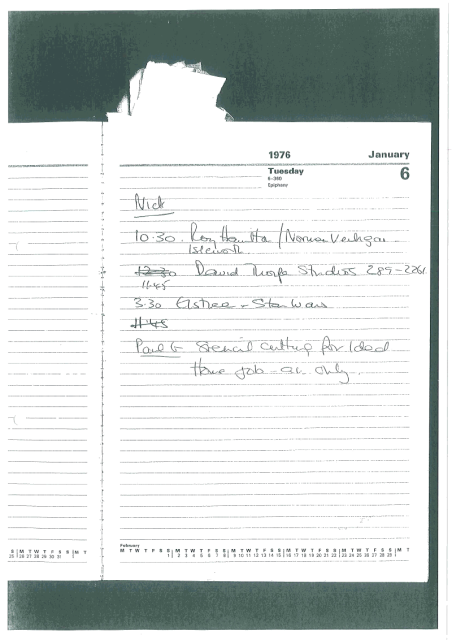 1976 January
Tuesday 6
6–360
Epiphany
Nick
10·30. Roy Hamilton / Norman
Isleworth
12·30 David Thorpe Studios 289–2261
11·45
3·30 Elstree – Star Wars
11·45
Paul G Stencil cutting for Ideal
Home job – a.m. only.
February
S M T W T F S S M T
25 26 27 28 29 30 31
M T W T F S S M T W T F S S M T W T F S S M T W T F S S M T W T F S S M T
1 2 3 4 5 6 7 8 9 10 11 12 13 14 15 16 17 18 19 20 21 22 23 24 25 26 27 28 29